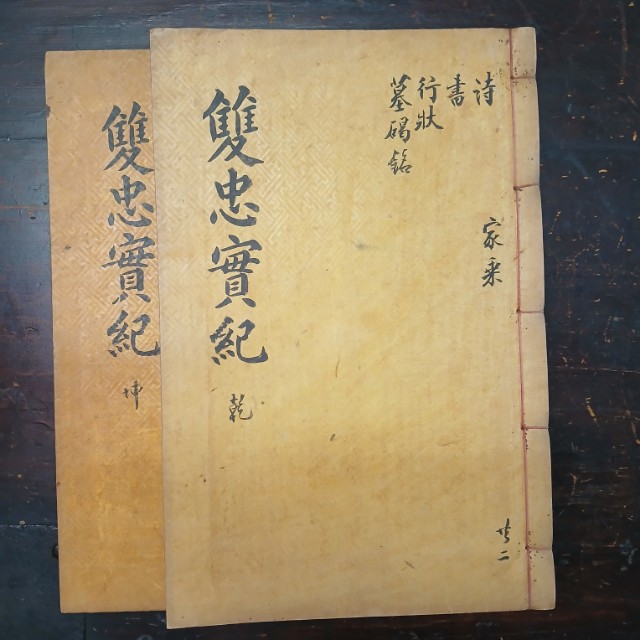 詩
書
行狀
墓碣銘
家乘
共二
雙忠實紀
乾
雙忠實紀
坤